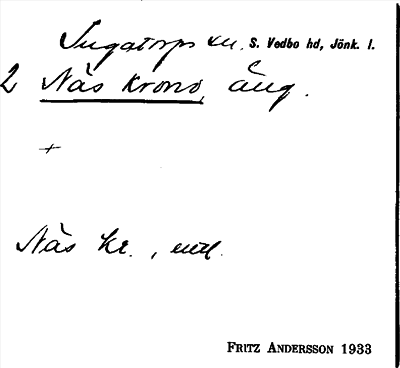 Ingatorps sn. S. Vedbo hd, Jönk. l.
2 Näs Krono, äng.
+
Näs kr., utd.
FRITZ ANDERSSON 1933